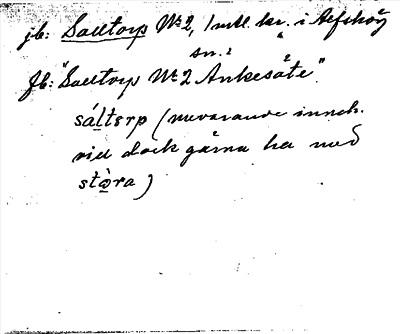 jb: Saltorp No 2, 1 mtl. kr. i Refshög
sn.:
Jb: "Saltorp No 2 Ankesäte"
sáltɛrp (nuvarande inneh.
vill dock gärna ha med
stòra)